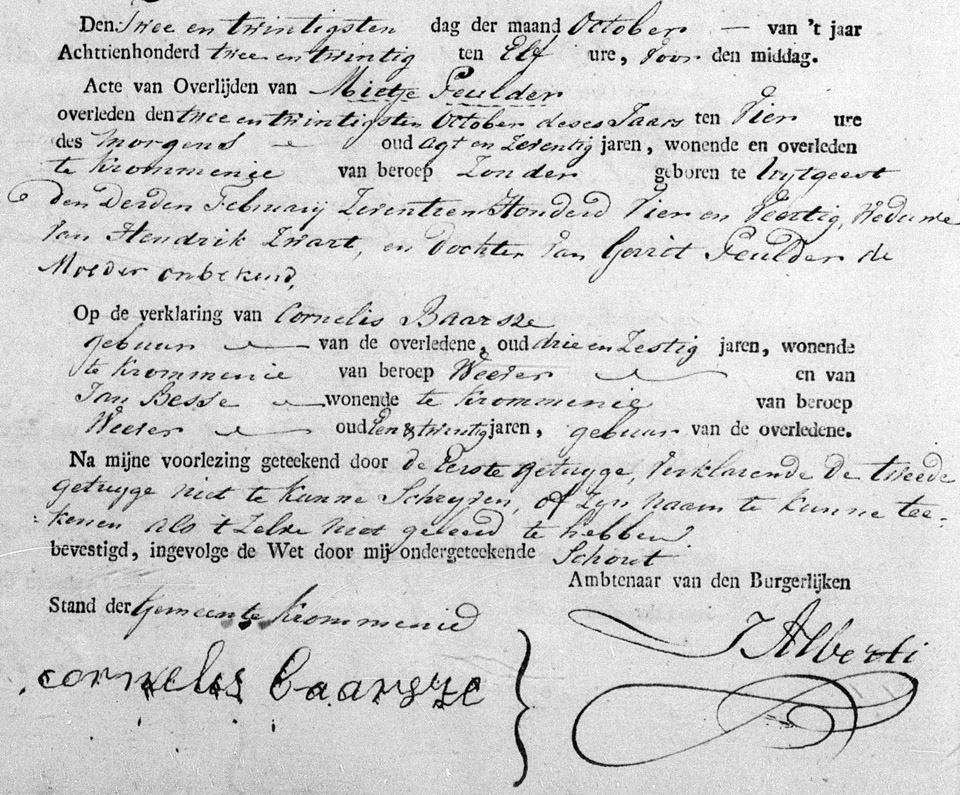 Den twee en twintigsten dag der maand October — van 't jaar
Achttienhonderd twee en twintig ten Elf ure, voor den middag.
Acte van Overlijden van Mietje Feulder
overleden den twee en twintigsten October deses Jaars ten Vier ure
des morgens oud agt en Zeventig jaren, wonende en overleden
te Krommenie van beroep Zonder geboren te Uytgeest
den Derden February Zeventeen Honderd Vier en Veertig, Weduwe
van Hendrik Zwart, en dochter van Gerrit Feulder de
Moeder onbekend,
Op de verklaring van Cornelis Baarsze
gebuur van de overledene, oud drie en Zestig jaren, wonende
te Krommenie van beroep Weever en van
Jan Besse wonende te Krommenie van beroep
Weever oud Een & twintig jaren, gebuur van de overledene.
Na mijne voorlezing geteekend door de Eerste getuyge, Verklarende De tweede
getuyge niet te kunne Schryven, of Zyn naam te kunne tee-
kenen als t Zelve niet geleerd te hebben
bevestigd, ingevolge de Wet door mij ondergeteekende Schout
Ambtenaar van den Burgerlijken
Stand der Gemeente Krommenie
J Alberti
cornelis baarsze